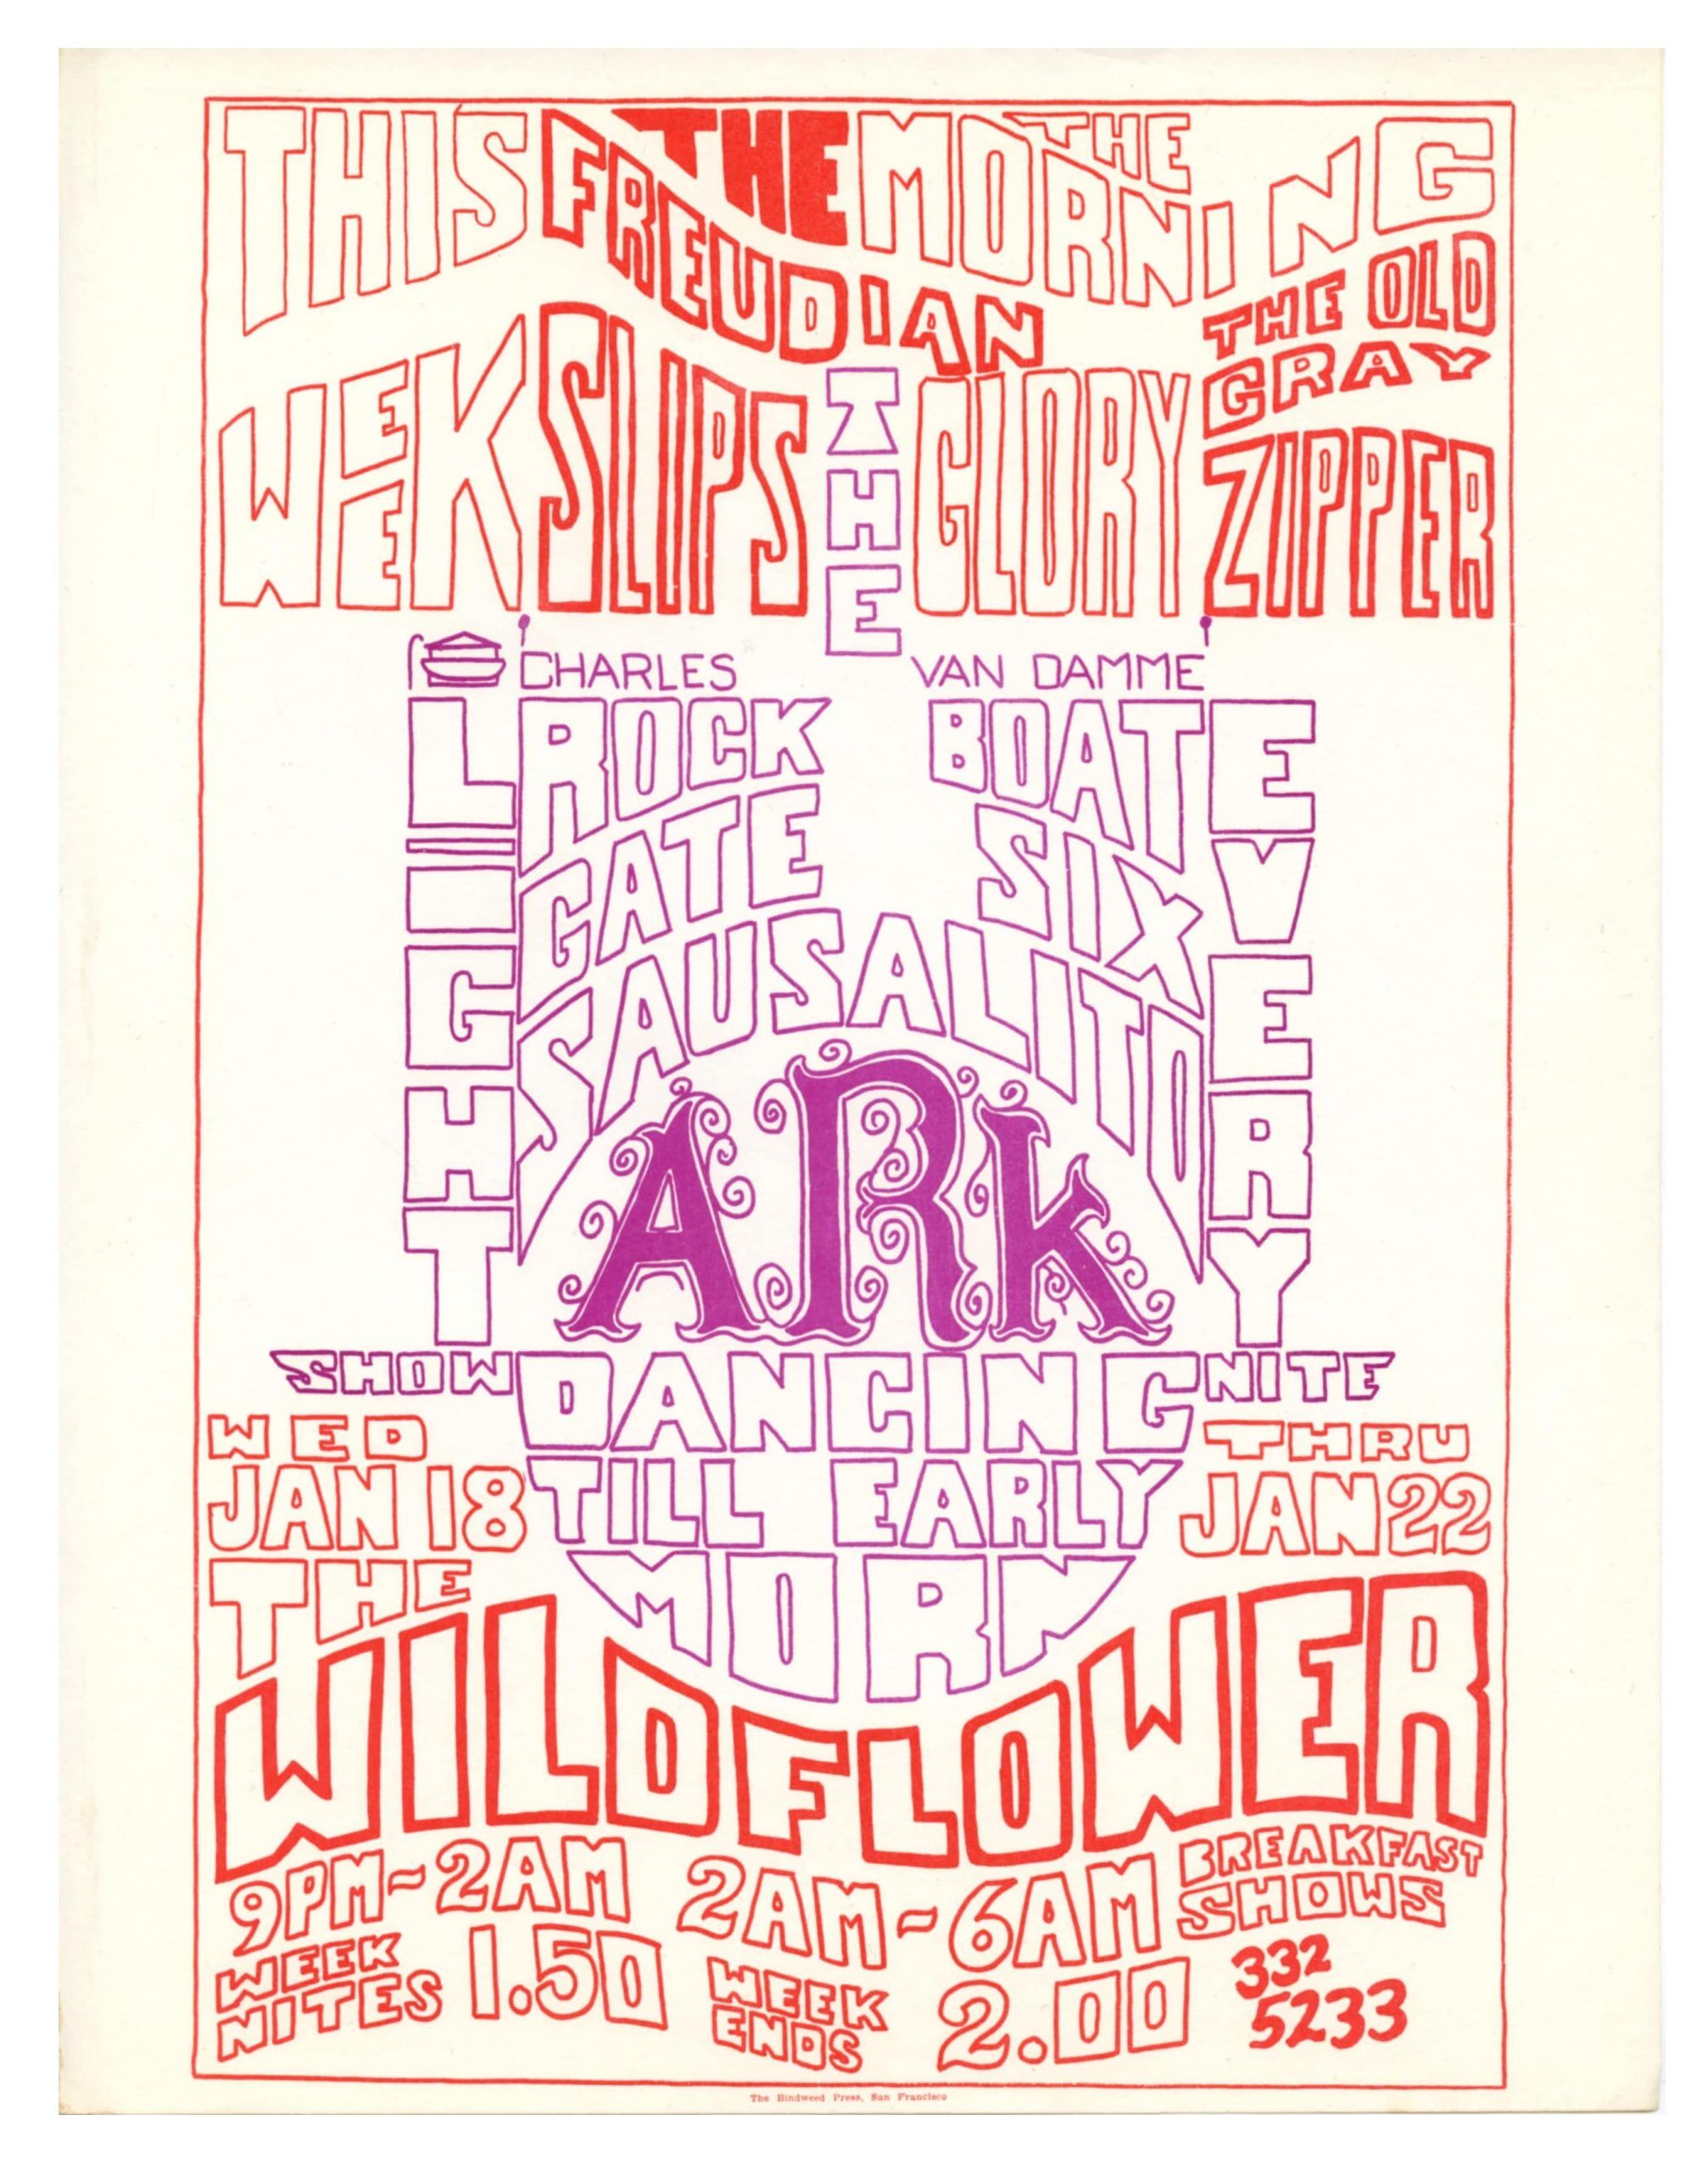 THIS
WEEK
THE
FREUDIAN
SLIPS
THE
MORNING
GLORY
THE OLD
GRAY
ZIPPER
THE
CHARLES VAN DAMME
ROCK BOAT
GATE SIX
SAUSALITO
ARK
LIGHT
SHOW
EVERY
NITE
DANCING
TILL EARLY
MORN
WED
JAN 18
THRU
JAN 22
THE
WILDFLOWER
9PM-2AM 2AM-6AM BREAKFAST
SHOWS
WEEK
NITES 1.50
WEEK
ENDS 2.00
332
5233
The Bindweed Press, San Francisco